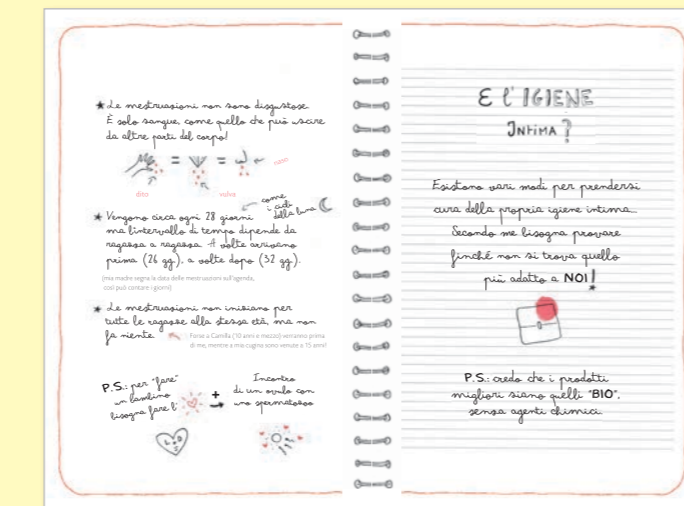 ★ Le mestruazioni non sono disgustose.
È solo sangue, come quello che può uscire
da altre parti del corpo!
= = naso
dito
vulva
★ Vengono circa ogni 28 giorni
come
i cicli
della luna
ma l'intervallo di tempo dipende da
ragazza a ragazza. A volte arrivano
prima (26 gg.), a volte dopo (32 gg.).
(mia madre segna la data delle mestruazioni sull'agenda,
così può contare i giorni)
★ Le mestruazioni non iniziano per
tutte le ragazze alla stessa età, ma non
fa niente
Forse a Camilla (10 anni e mezzo) verranno prima
di me, mentre a mia cugina sono venute a 15 anni!
P.S.: per "fare"
un bambino
bisogna fare l'
+
Incontro
di un ovulo con
uno spermatozoo
E l'IGIENE
INTIMA?
Esistono vari modi per prendersi
cura della propria igiene intima...
Secondo me bisogna provare
finché non si trova quello
più adatto a NOI!
P.S.: credo che i prodotti
migliori siano quelli "BIO",
senza agenti chimici.